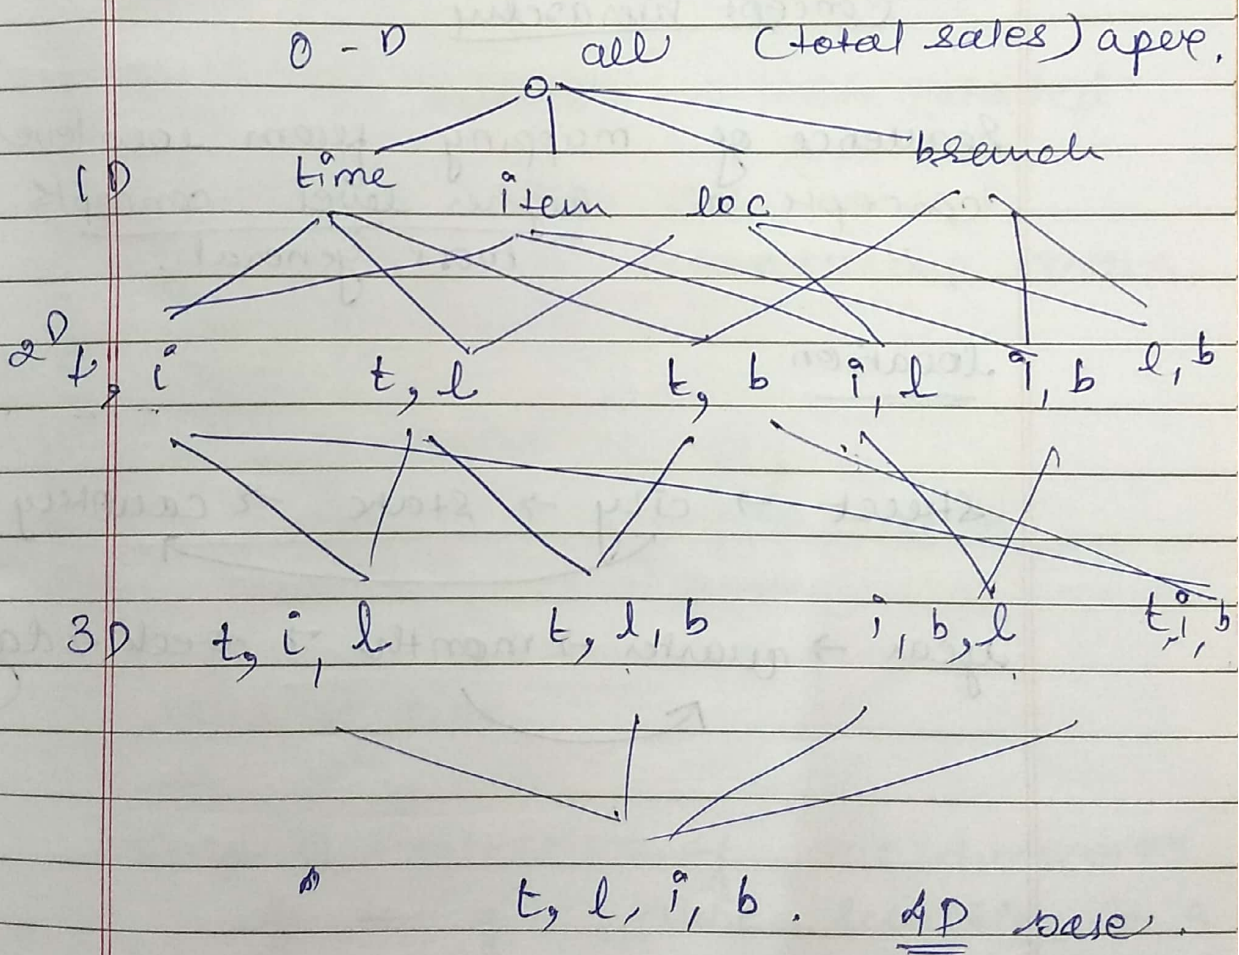 0 - D all (total sales) apex.
1D time item loc branch
2D t, i t, l t, b i, l i, b l, b
3D t, i, l t, l, b i, b, l t, i, b
t, l, i, b. 4D base.